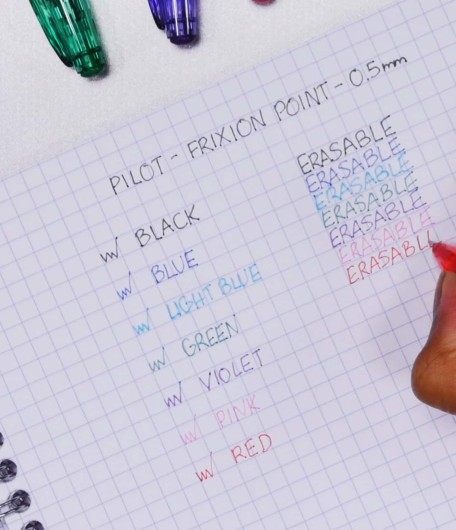 PILOT - FRIXION POINT - 0.5mm
BLACK
BLUE
LIGHT BLUE
GREEN
VIOLET
PINK
RED
ERASABLE
ERASABLE
ERASABLE
ERASABLE
ERASABLE
ERASABLE
ERASABLL